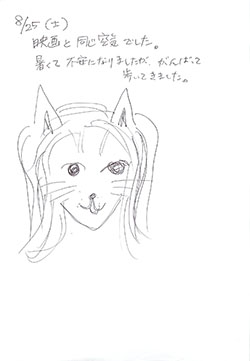 8/25 (土)
映画と同じ空気でした。
暑くて不安になりましたが、がんばって
歩いてきました。